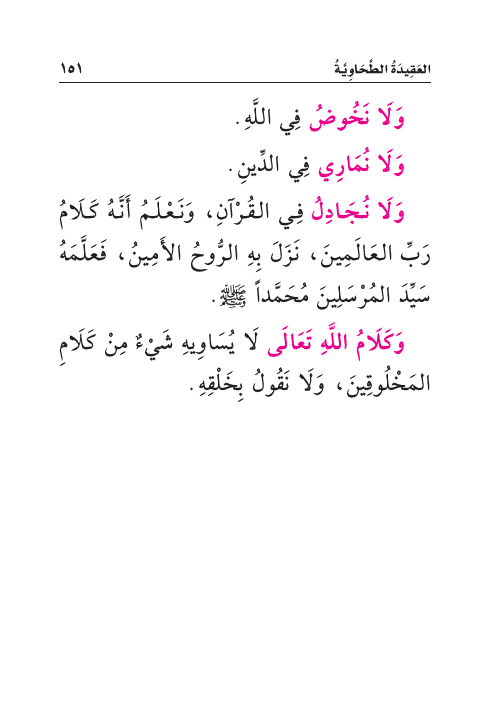 العَقِيدَةُ الطَّحَاوِيَّةُ ١٥١
وَلَا نَخُوضُ فِي اللَّهِ.
وَلَا نُمَارِي فِي الدِّينِ.
وَلَا نُجَادِلُ فِي القُرْآنِ، وَنَعْلَمُ أَنَّهُ كَلَامُ
رَبِّ العَالَمِينَ، نَزَلَ بِهِ الرُّوحُ الأَمِينُ، فَعَلَّمَهُ
سَيِّدَ المُرْسَلِينَ مُحَمَّداً ﷺ.
وَكَلَامُ اللَّهِ تَعَالَى لَا يُسَاوِيهِ شَيْءٌ مِنْ كَلَامِ
المَخْلُوقِينَ، وَلَا نَقُولُ بِخَلْقِهِ.